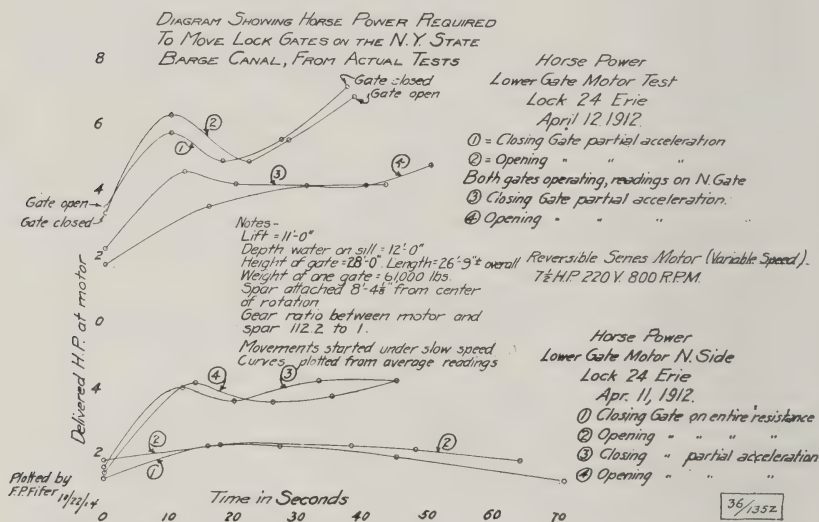 DIAGRAM SHOWING HORSE POWER REQUIRED
TO MOVE LOCK GATES ON THE N.Y. STATE
BARGE CANAL, FROM ACTUAL TESTS
Gate closed
Gate open
8
6
4
2
0
4
2
Delivered H.P. at motor
Gate open
Gate closed
②
①
③
④
Horse Power
Lower Gate Motor Test
Lock 24 Erie
April 12. 1912.
① = Closing Gate partial acceleration
② = Opening " " "
Both gates operating, readings on N. Gate
③ Closing Gate partial acceleration.
④ Opening " " "
Notes-
Lift = 11'-0"
Depth water on sill = 12'-0"
Height of gate = 28'-0". Length = 26'-9"± overall
Weight of one gate = 61,000 lbs.
Spar attached 8'-4⅛" from center
of rotation
Gear ratio between motor and
spar 112.2 to 1.
Movements started under slow speed
Curves plotted from average readings
Reversible Series Motor (Variable Speed).
7½ H.P. 220 V. 800 R.P.M.
④
③
②
①
②
Horse Power
Lower Gate Motor N. Side
Lock 24 Erie
Apr. 11, 1912.
① Closing Gate on entire resistance
② Opening " " " "
③ Closing " partial acceleration
④ Opening " " "
Plotted by
F.P. Fifer 10/22/14
Time in Seconds
0 10 20 30 40 50 60 70
36/1352